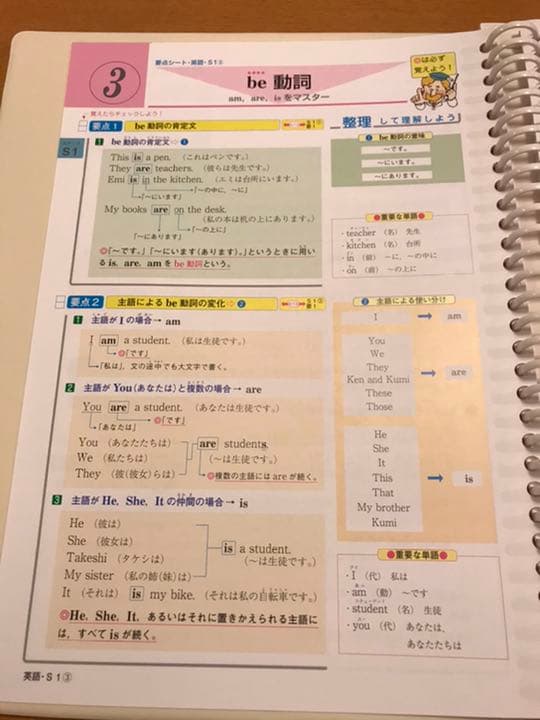 要点シート・英語・S1③
3
be 動詞
am, are, is をマスター
◎は必ず
覚えよう!
覚えたらチェックしよう!
要点1 be 動詞の肯定文
整理 して理解しよう
S1
1 be 動詞の肯定文⇨❶
This is a pen. (これはペンです。)
They are teachers. (彼らは先生です。)
Emi is in the kitchen. (エミは台所にいます。)
「~の中に、~に」
「~にいます」
My books are on the desk.
(私の本は机の上にあります。)
「~の上に」
「~にあります」
◎「~です。」「~にいます(あります)。」というときに用い
る is, are, am を be 動詞という。
❶ be 動詞の意味
~です。
~にいます。
~にあります。
●重要な単語●
・teacher (名) 先生
・kitchen (名) 台所
・in (前) ~に、~の中に
・on (前) ~の上に
要点2 主語による be 動詞の変化⇨❷
1 主語が I の場合→am
I am a student. (私は生徒です。)
◎「です」
「私は」、文の途中でも大文字で書く。
2 主語が You(あなたは)と複数の場合→are
You are a student. (あなたは生徒です。)
◎「です」
「あなたは」
You (あなたたちは)
We (私たちは)
They (彼(彼女)らは)
are students.
(~は生徒です。)
◎複数の主語には are が続く。
3 主語が He, She, It の仲間の場合→is
He (彼は)
She (彼女は)
Takeshi (タケシは)
My sister (私の姉(妹)は)
is a student.
(~は生徒です。)
It (それは) is my bike. (それは私の自転車です。)
◎He, She, It, あるいはそれに置きかえられる主語に
は、すべて is が続く。
❷ 主語による使い分け
I → am
You
We
They
Ken and Kumi
These
Those
→ are
He
She
It
This
That
My brother
Kumi
→ is
●重要な単語●
・I (代) 私は
・am (動) ~です
・student (名) 生徒
・you (代) あなたは、
あなたたちは
英語・S1③